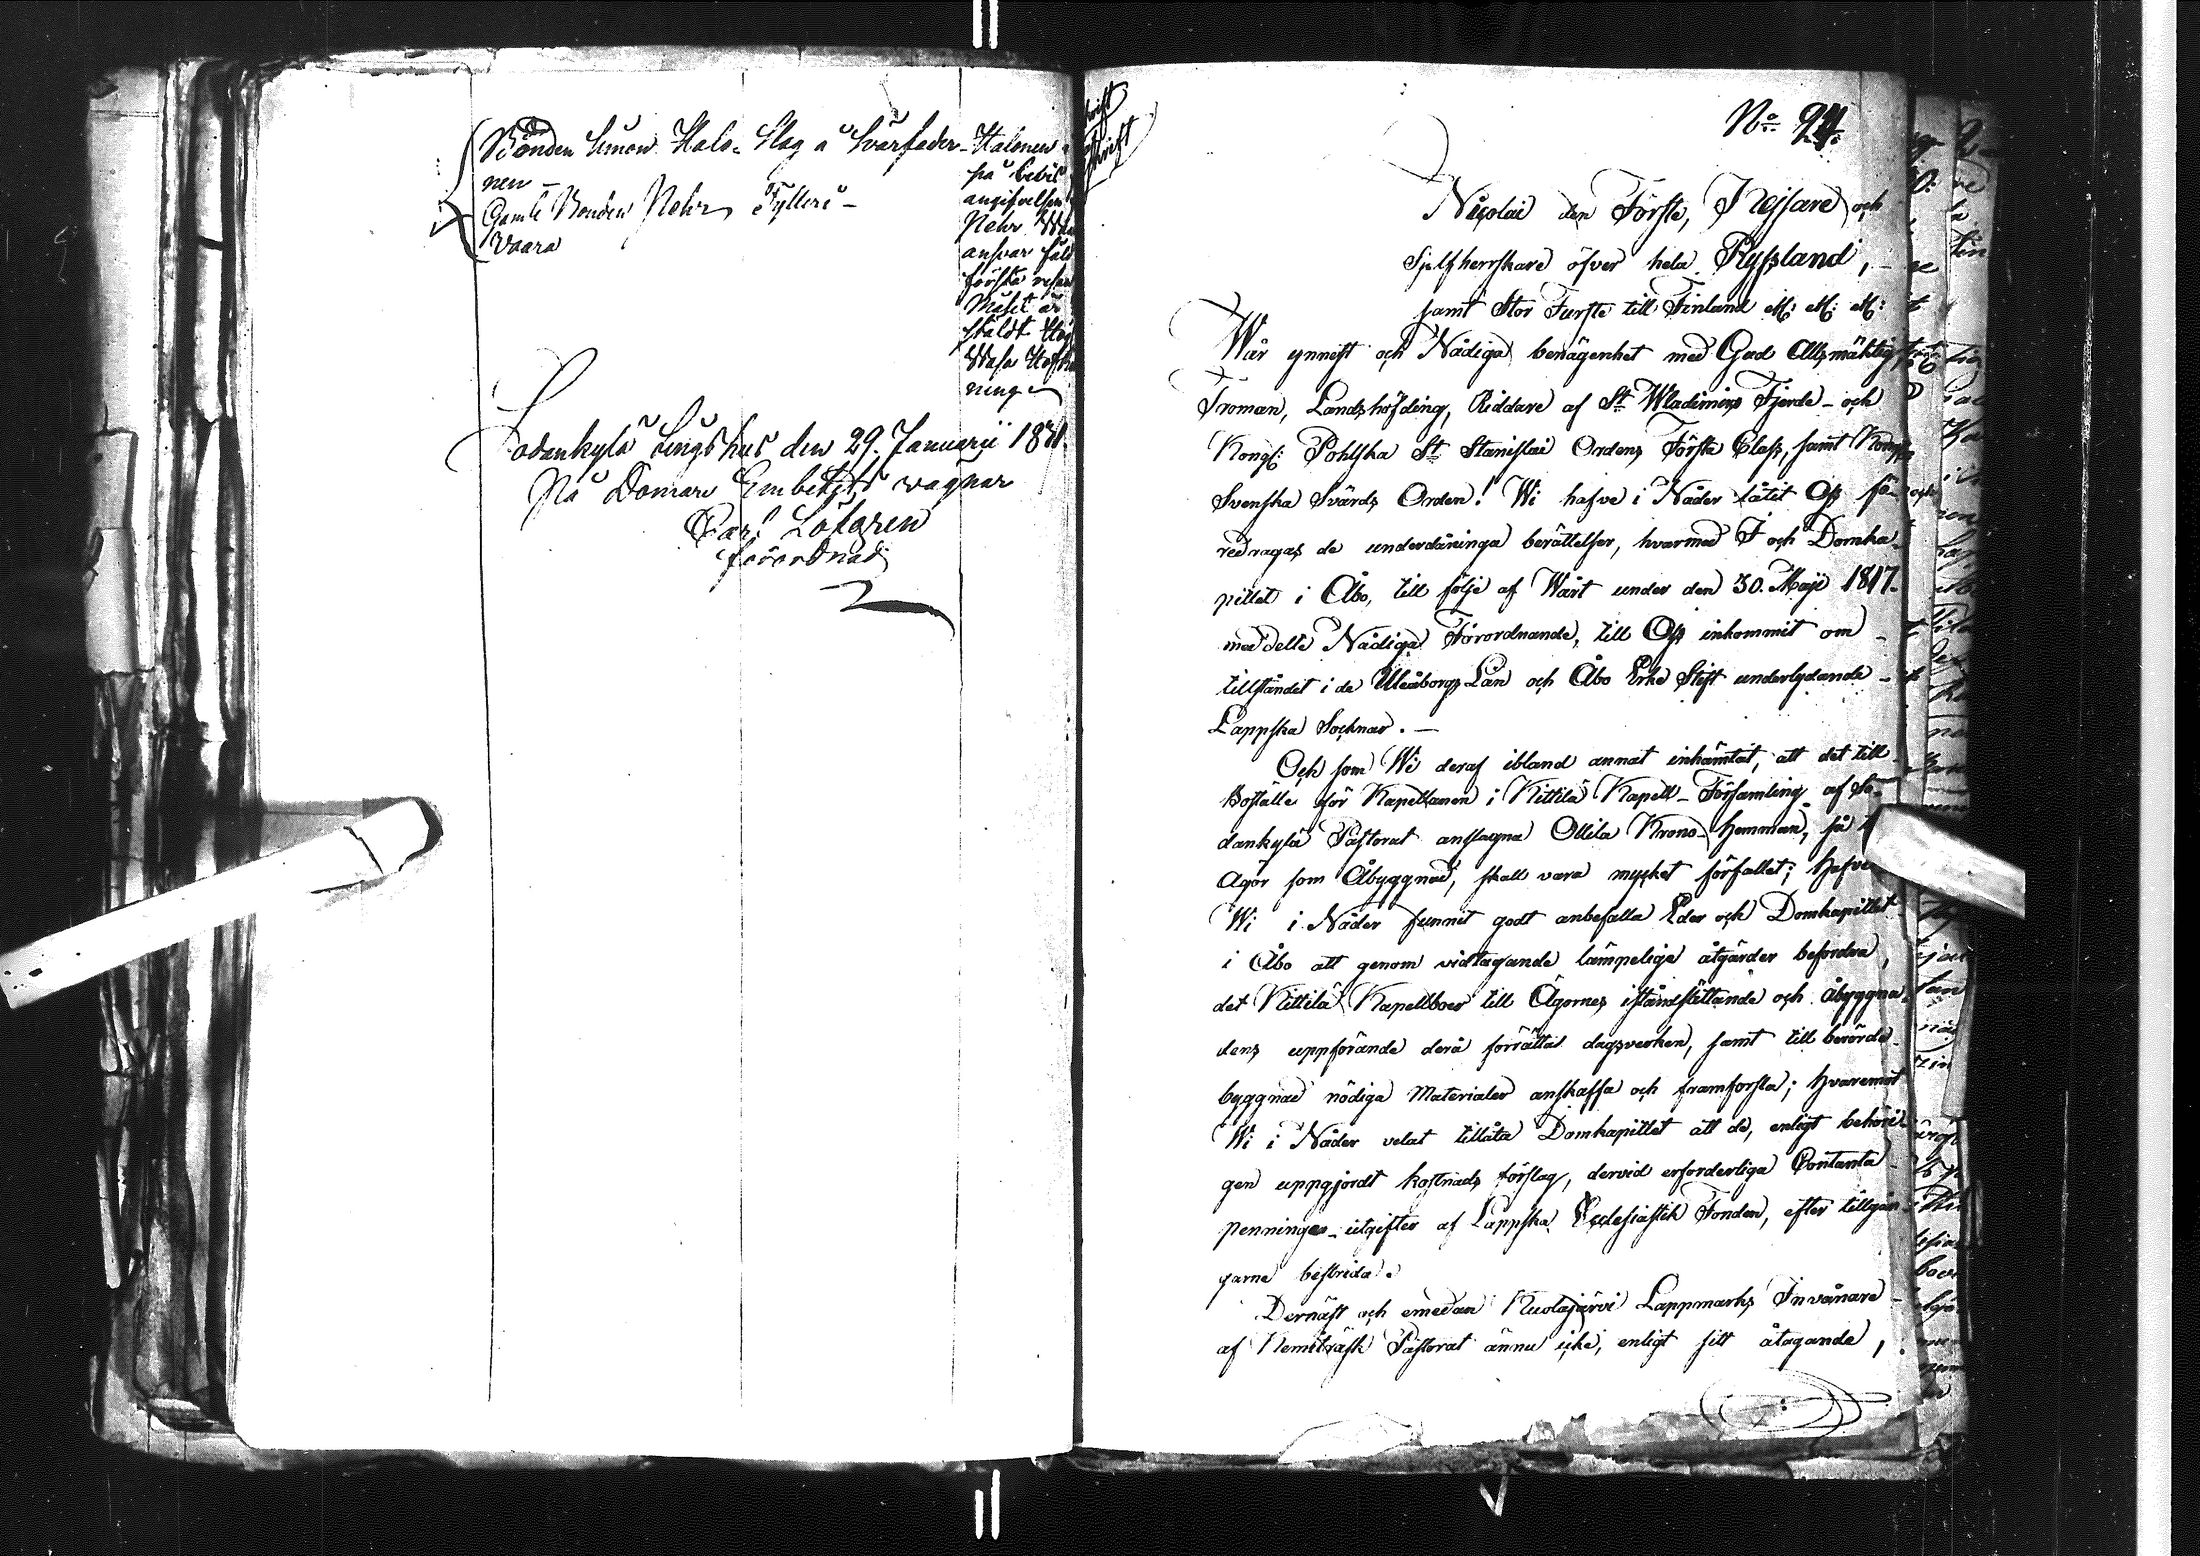 Bonden Simon Halo- Slag å Svärfader
nen -
Gamle Bonden Pehr Fylleri -
Vaara
Halonen
på
angifvelsen
Pehr
ansvar
första
Målet är
ning
Sodankylä Tingshus den 29. Januarii 1831.
På Domare Embetets vägnar
Carl Löfgren
förordnad
No 24.
Nicolai den Förste, Kejsare och
Sjelfherrskare öfver hela Ryssland, -
samt Stor Furste till Finland etc: etc: etc:
Wår ynnest och Nådiga benägenhet med Gud Allsmäktig
Troman, Landshöfding, Riddare af St Wladimirs Fjerde - och
Kongl: Pohlska St Stanislai Ordens Första Class, samt Kongl
Svenska Svärds Orden! Wi hafve i Nåder låtit Oss fö-
redragas de underdåninga berättelser, hvarmed I och Domka-
pitlet i Åbo, till följe af Wårt under den 30. Maji 1817.
meddelte Nådiga Förordnande, till Oss inkommit om
tillståndet i de Uleåborgs Län och Åbo Erke Stift underlydande -
Lappska Socknar. -
Och som Wi deraf ibland annat inhämtat, att det till
Boställe för Kapellanen i Kittilä Kapell-Församling af So-
dankylä Pastorat anslagna Ollila Krono-Hemman, så
Ägor som Åbyggnad, skall vara mycket förfallet; Hafve
Wi i Nåder funnit godt anbefalla Eder och Domkapitlet
i Åbo att genom vidtagande lämpelige åtgärder befordra,
det Kittilä Kapellboer till Ägornes iståndsättande och åbyggna-
dens uppförande derå förrättat dagsverken, samt till berörde
byggnad nödiga Materialer anskaffa och framforsla; Hvaremot
Wi i Nåder velat tillåta Domkapitlet att de, enligt behöri-
gen uppgjordt kostnads förslag, dervid erforderliga Contanta
penninge-utgifter af Lappska Ecclesiastik Fonden, efter tillgån-
garne bestrida.
Dernäst och emedan Kuolajärvi Lappmarks Invånare
af Kemiträsk Pastorat ännu icke, enligt sitt åtagande,